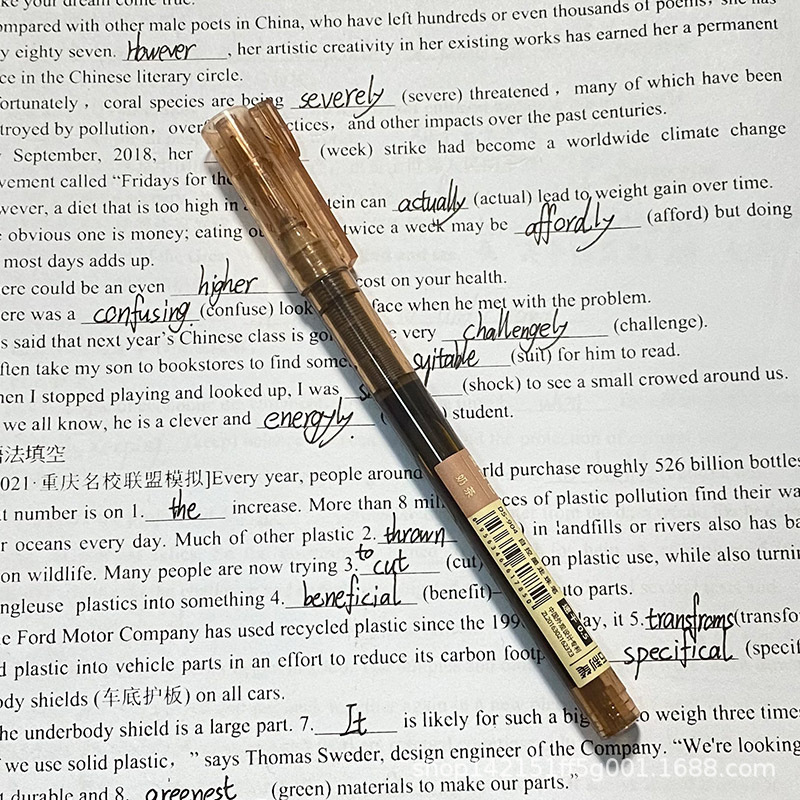 ke your dream come true.
ompared with other male poets in China, who have left hundreds or even thousands of poems, she has
y eighty seven. However , her artistic creativity in her existing works has earned her a permanent
ce in the Chinese literary circle.
fortunately , coral species are being severely (severe) threatened , many of which have been
troyed by pollution, over ctices, and other impacts over the past centuries.
September, 2018, her (week) strike had become a worldwide climate change
vement called “Fridays for the
wever, a diet that is too high in tein can actually (actual) lead to weight gain over time.
e obvious one is money; eating ou twice a week may be affordly (afford) but doing
most days adds up.
ere could be an even higher cost on your health.
ere was a confusing. (confuse) look face when he met with the problem.
s said that next year’s Chinese class is goi e very challengely (challenge).
ften take my son to bookstores to find some suitable (suit) for him to read.
hen I stopped playing and looked up, I was s (shock) to see a small crowed around us.
we all know, he is a clever and energyly. student.
语法填空
2021·重庆名校联盟模拟]Every year, people around rld purchase roughly 526 billion bottles
t number is on 1. the increase. More than 8 mill ces of plastic pollution find their wa
r oceans every day. Much of other plastic 2. thrown ) in landfills or rivers also has ba
on wildlife. Many people are now trying 3. to cut (cut) on plastic use, while also turnin
ngleuse plastics into something 4. beneficial (benefit)– to parts.
e Ford Motor Company has used recycled plastic since the 199 ay, it 5. transfroms (transfo
d plastic into vehicle parts in an effort to reduce its carbon footp specifical (specif
ody shields (车底护板) on all cars.
he underbody shield is a large part. 7. It is likely for such a big to weigh three time
f we use solid plastic, ” says Thomas Sweder, design engineer of the Company. “We're looking
t durable and 8. greenest (green) materials to make our parts.”
奶茶
DS-904 直控墨走珠笔
6958346617850
速干 0.5
shop142151ff5g001.1688.com